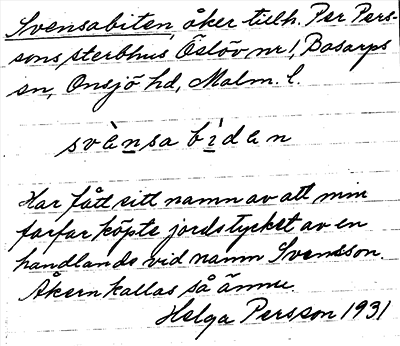 Svensabiten, åker tillh. Per Pers-
sons sterbhus Öslöv nr 1, Bosarps
sn, Onsjö hd, Malm. l.
svènsa bìdan
Har fått sitt namn av att min
farfar köpte jordstycket av en
handlande vid namn Svensson.
Åkern kallas så ännu.
Helga Persson 1931